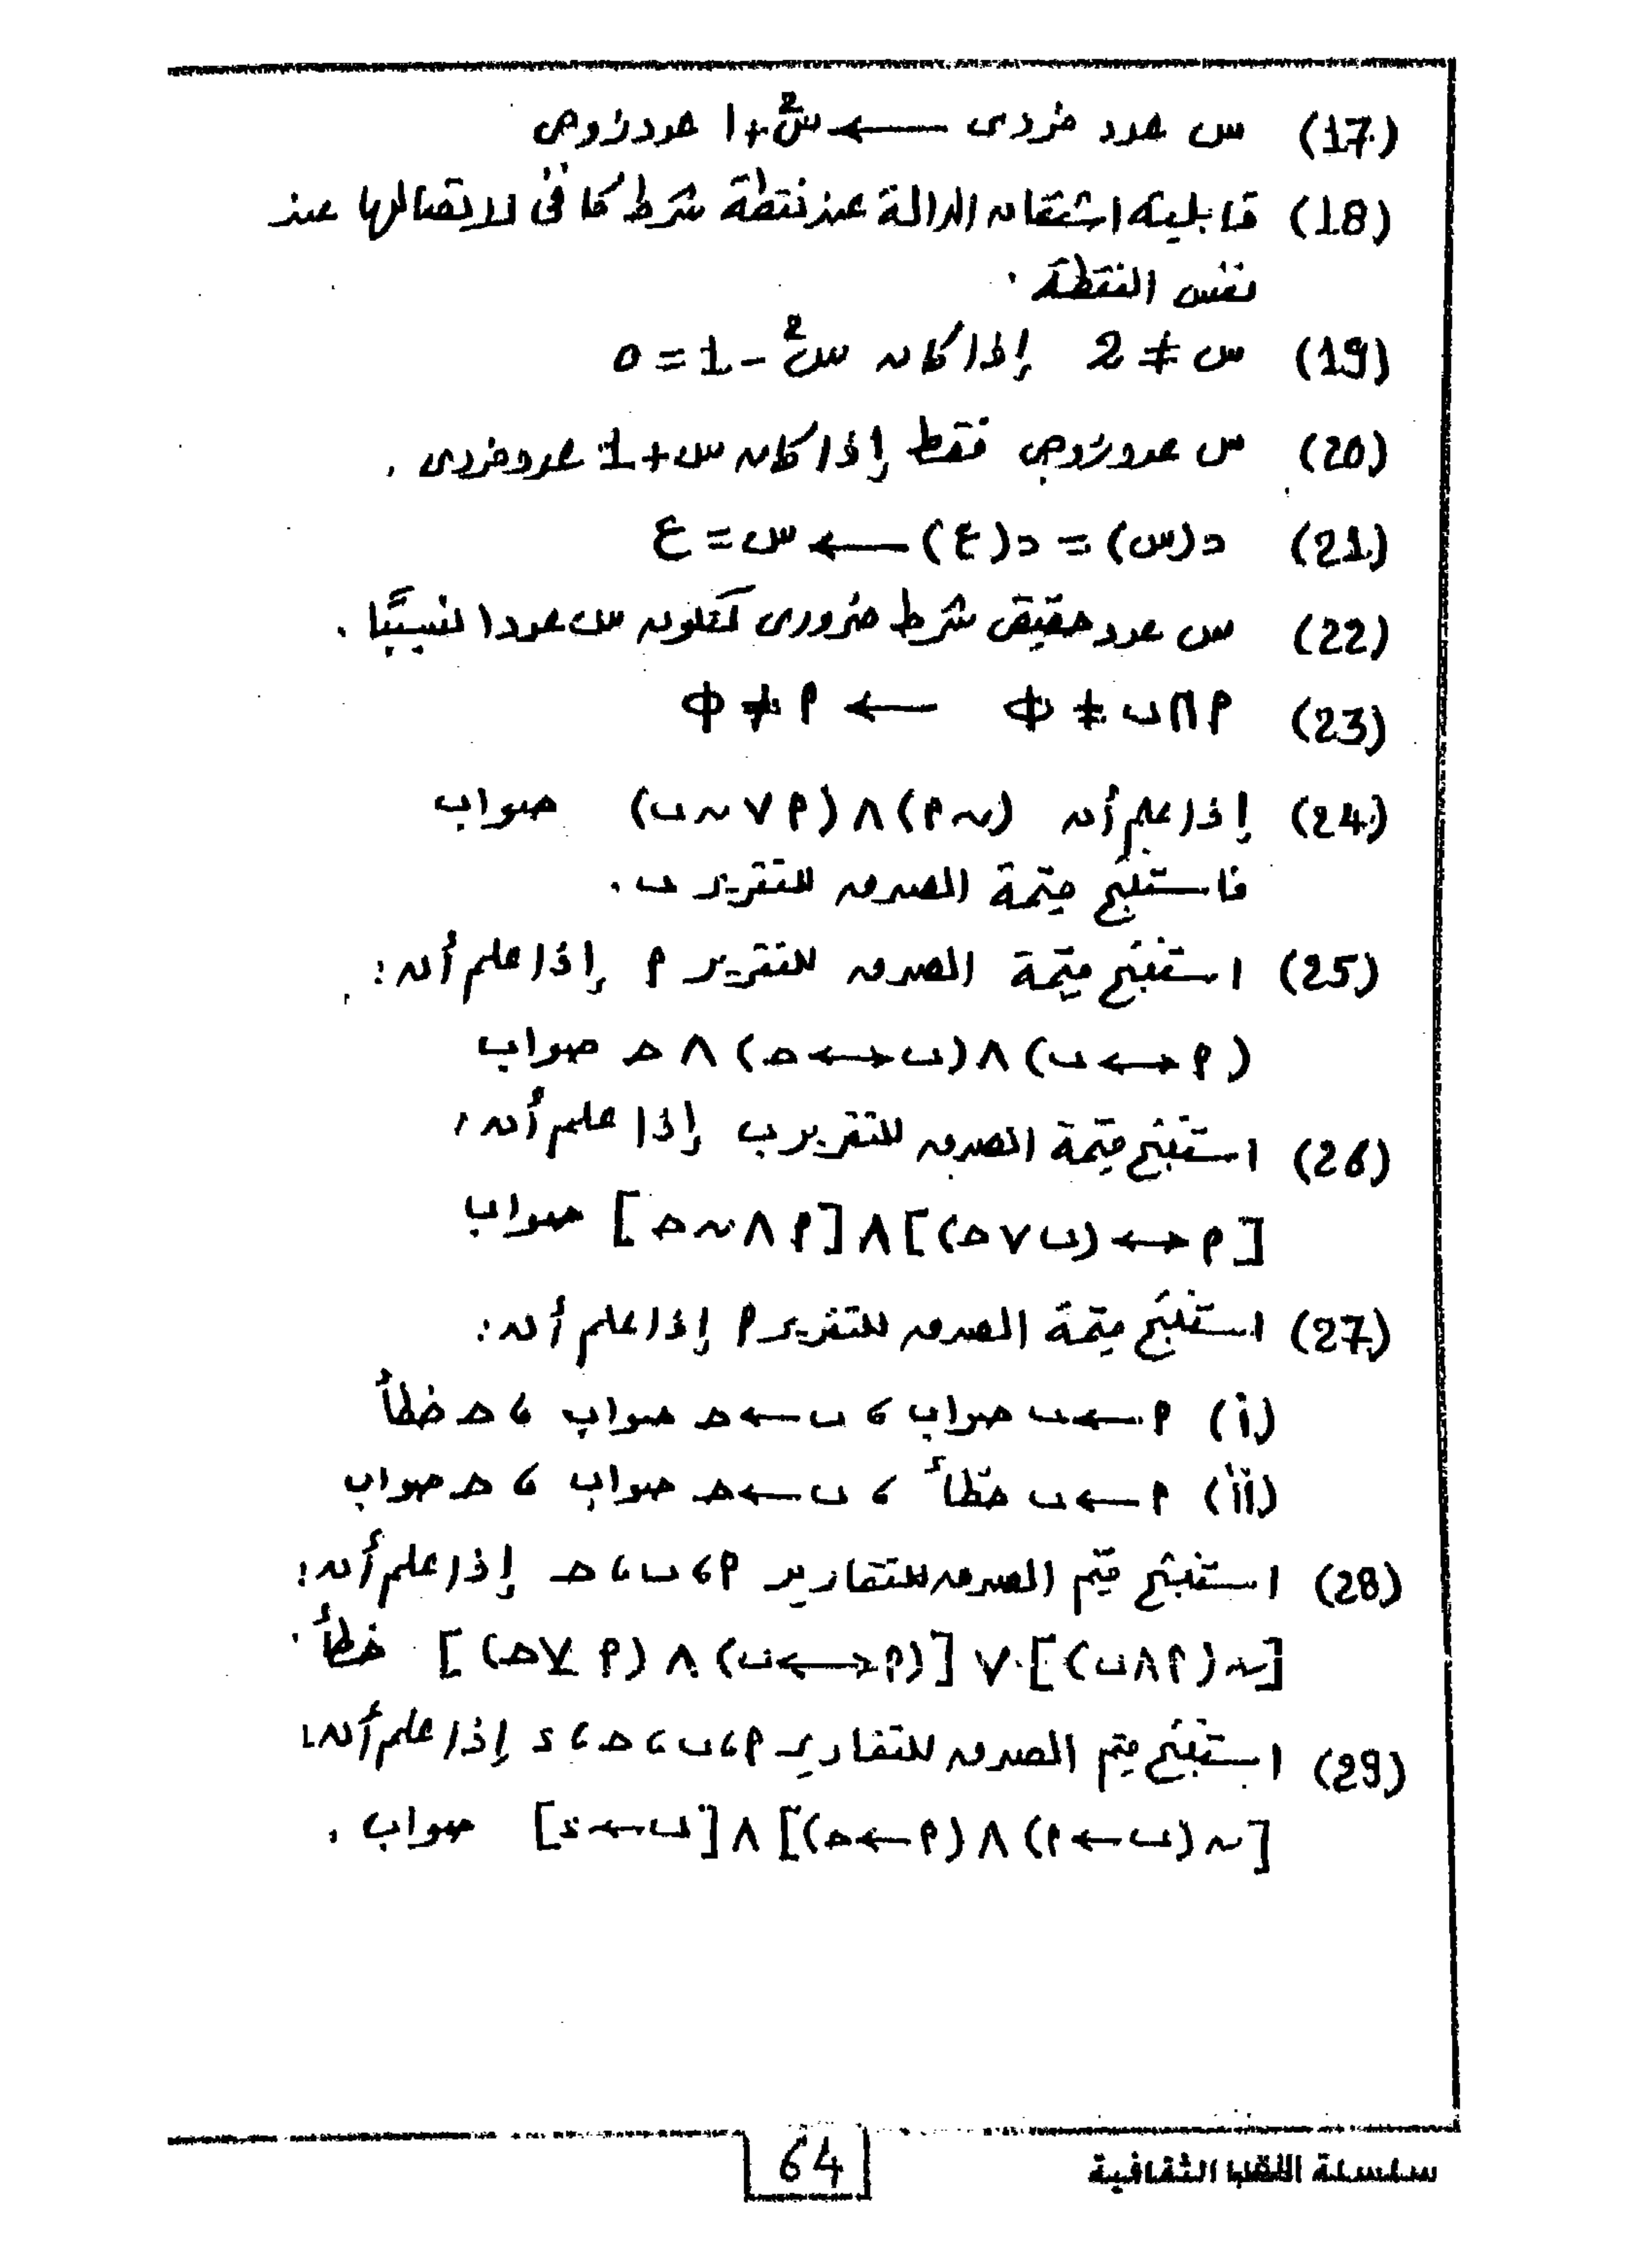 (17) س عدد فردى ← س²+1 عدد زوجى
(18) قابلية اشتقاق الدالة عند نقطة شرط كافى لاتصالها عند
نفس النقطة .
(19) س ≠ 2 إذا كان س² - 1 = 0
(20) س عدد زوجى فقط إذا كان س + 1 عدد فردى .
(21) د(س) = د(ع) ← س = ع
(22) س عدد حقيقى شرط ضرورى لتكون س عددا نسبيًا .
(23) م ∩ ب ≠ Φ ← م ≠ Φ
(24) إذا علم أن (~م) ∧ (م ∨ ~ب) صواب
فاستنتج قيمة الصدق للتقرير ب .
(25) استنتج قيمة الصدق للتقرير م إذا علم أن :
(م ↔ ب) ∧ (ب ↔ ح) ∧ ح صواب
(26) استنتج قيمة الصدق للتقرير ب إذا علم أن :
[م ↔ (ب ∨ ح)] ∧ [م ∧ ~ح] صواب
(27) استنتج قيمة الصدق للتقرير م إذا علم أن :
(i) م ← ب صواب ، ب ← ح صواب ، ح خطأ
(ii) م ← ب خطأ ، ب ← ح صواب ، ح صواب
(28) استنتج قيم الصدق للتقارير م ، ب ، ح إذا علم أن :
[~(م ∧ ب)] ∨ [(م ↔ ب) ∧ (م ⊻ ح)] خطأ .
(29) استنتج قيم الصدق للتقارير م ، ب ، ح ، د إذا علم أن :
[~(ب ← م) ∧ (م ← ح)] ∧ [ب ← د] صواب .
64
سلسلة الثقافية